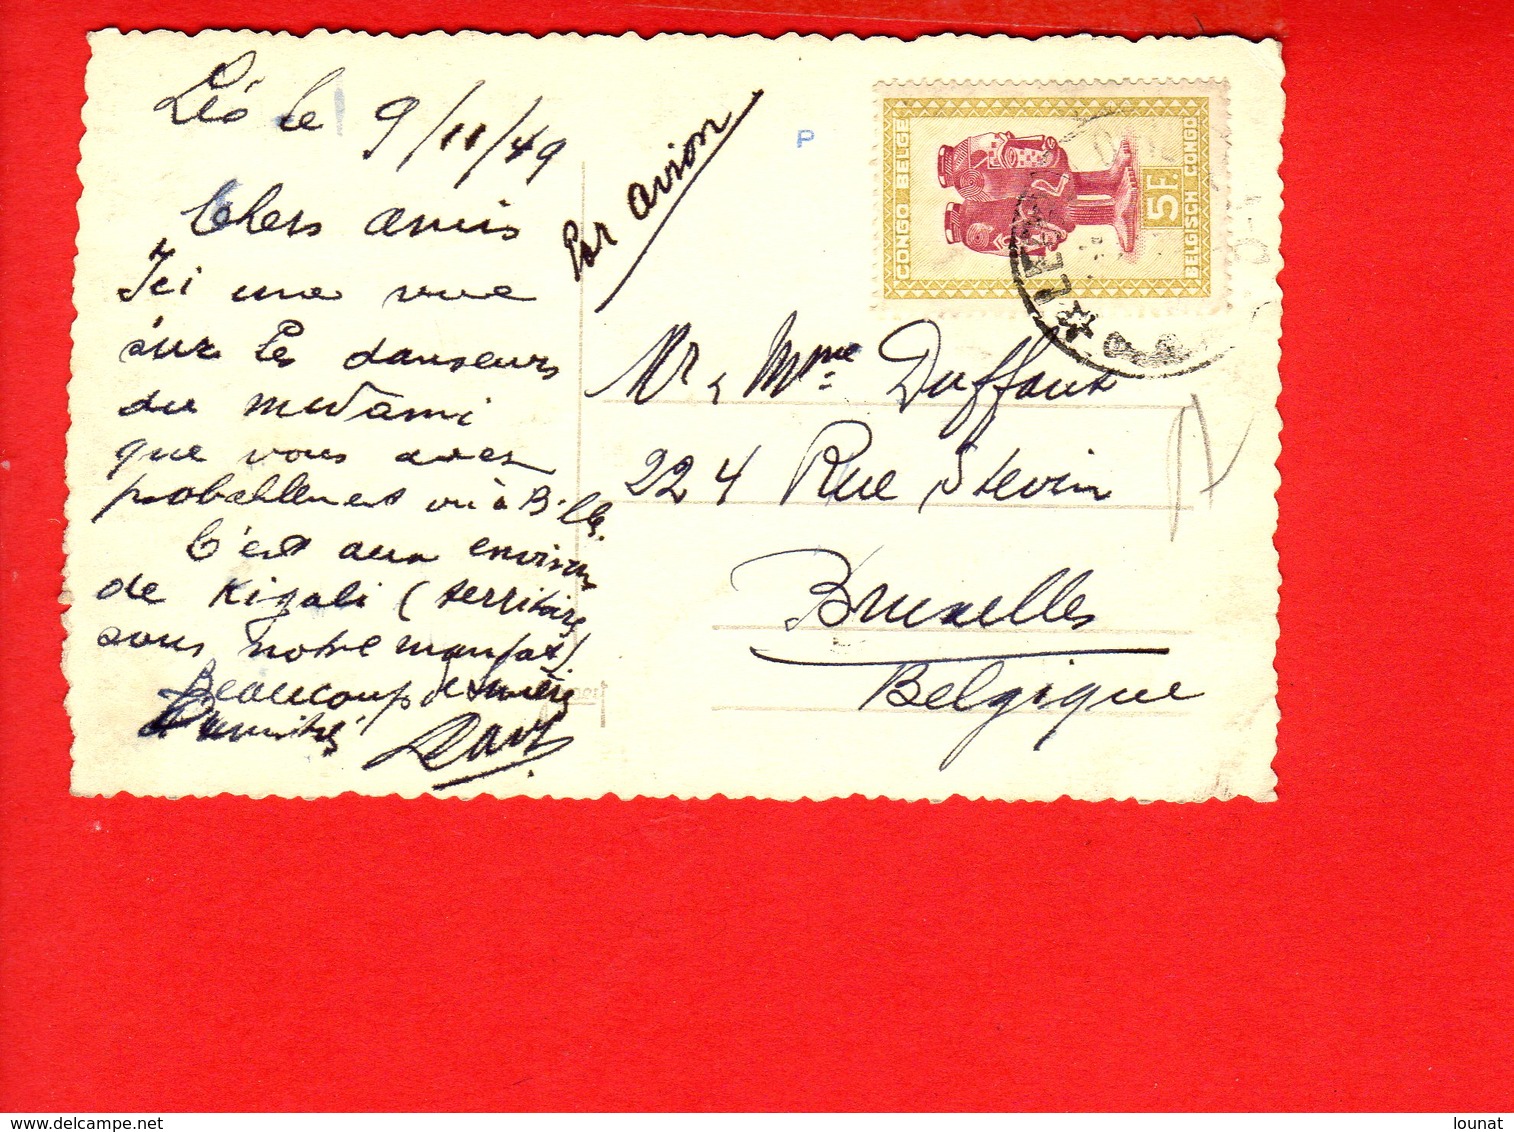 Léo le 9/11/49
Chers amis
Ici une vue
sur les danseurs
du Mwami
que vous avez
probablement vu à B.lles.
C'est aux environs
de Kigali (territoire
sous notre mandat)
Beaucoup
d'amitiés
Par avion
P
CONGO BELGE
5F.
BELGISCH CONGO
Mr & Mme Duffaut
224 Rue Stevin
Bruxelles
Belgique
lounat